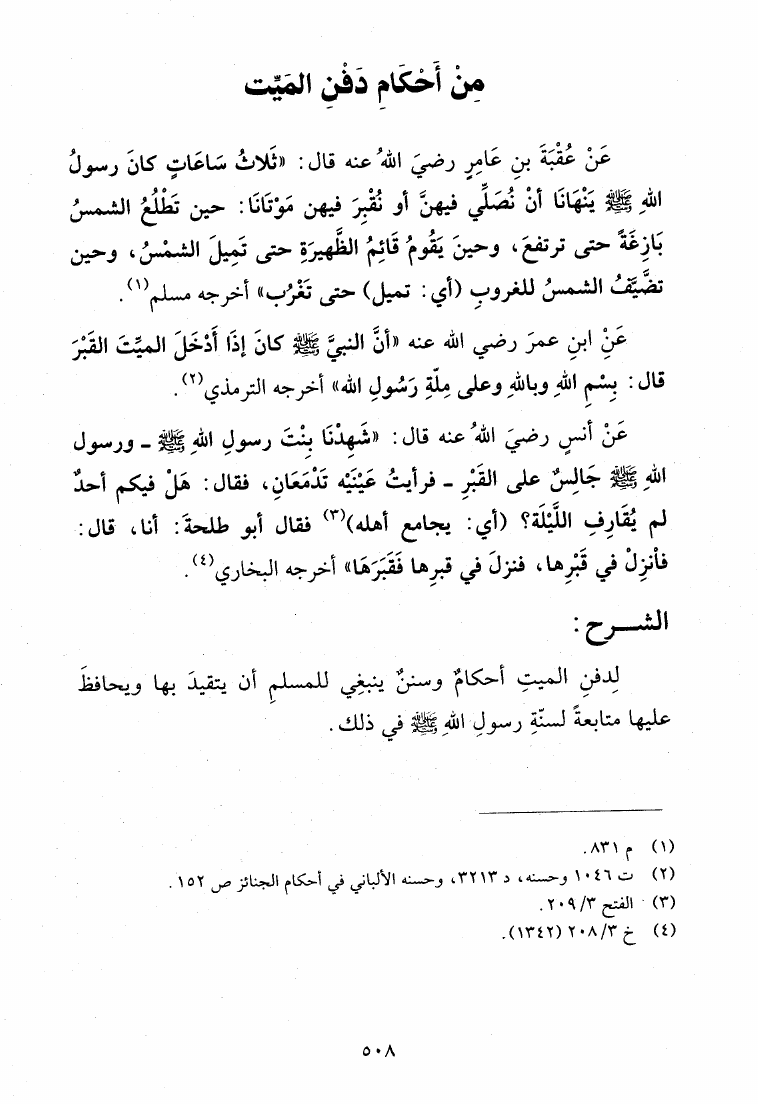 مِنْ أَحْكَامِ دَفْنِ المَيِّت
عَنْ عُقْبَةَ بنِ عَامِرٍ رضيَ اللهُ عنه قال: «ثَلاثُ سَاعَاتٍ كانَ رسولُ
اللهِ ﷺ يَنْهَانَا أنْ نُصَلِّي فيهنَّ أو نُقْبِرَ فيهن مَوْتَانَا: حين تَطْلُعُ الشمسُ
بَازِغَةً حتى ترتفعَ، وحينَ يَقُومُ قَائِمُ الظَّهيرَةِ حتى تَمِيلَ الشمْسُ، وحين
تضَّيَّفُ الشمسُ للغروبِ (أي: تميل) حتى تَغْرُب» أخرجه مسلم(١).
عَنْ ابنِ عمرَ رضي الله عنه «أنَّ النبيَّ ﷺ كانَ إذَا أَدْخَلَ الميِّتَ القَبْرَ
قال: بِسْمِ اللهِ وباللهِ وعلى مِلّةِ رَسُولِ الله» أخرجه الترمذي(٢).
عَنْ أنسٍ رضيَ اللهُ عنه قال: «شَهِدْنَا بِنْتَ رسولِ اللهِ ﷺ ـ ورسول
اللهِ ﷺ جَالِسٌ على القَبْرِ ـ فرأيتُ عَيْنَيْه تَدْمَعَانِ، فقال: هَلْ فيكم أحدٌ
لم يُقَارِفِ اللَّيْلَة؟ (أي: يجامع أهله)(٣) فقال أبو طلحةَ: أنا، قال:
فأنزِلْ في قَبْرِها، فنزلَ في قبرِها فَقَبَرَهَا» أخرجه البخاري(٤).
الشـــرح:
لِدفنِ الميتِ أحكامٌ وسننٌ ينبغِي للمسلمِ أن يتقيدَ بها ويحافظَ
عليها متابعةً لسنّةِ رسولِ اللهِ ﷺ في ذلك.
(١) م ٨٣١.
(٢) ت ١٠٤٦ وحسنه، د ٣٢١٣، وحسنه الألباني في أحكام الجنائز ص ١٥٢.
(٣) الفتح ٣/ ٢٠٩.
(٤) خ ٣/ ٢٠٨ (١٣٤٢).
٥٠٨